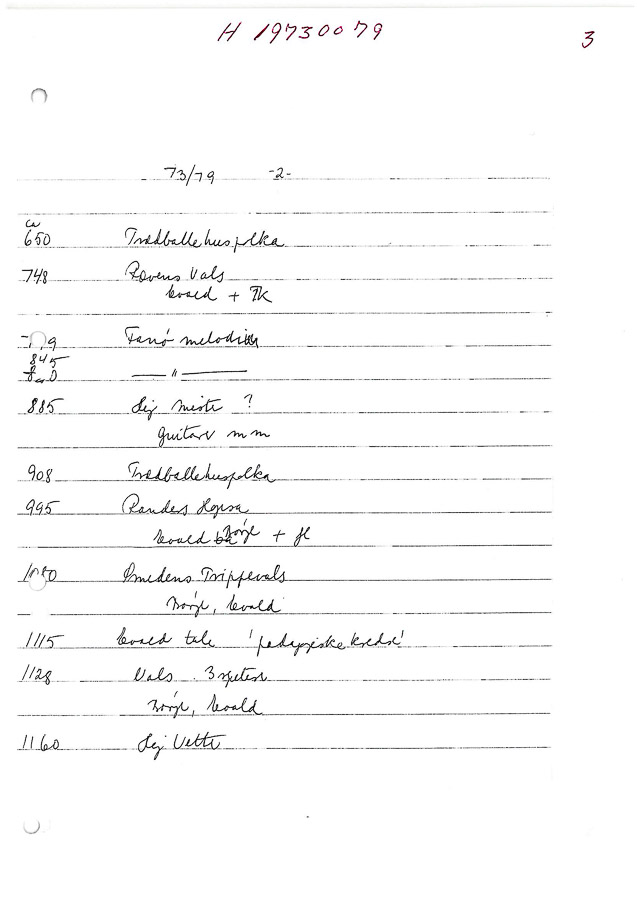 H 19730079
3
73/79 -2-
ca
650 Trædballehuspolka
748 Rævens Vals
Evald + TK
Fanó melodien
845
—— " ——
885 Sej Meste ?
guitar mm
908 Trædballehuspolka
995 Randers Hopsa
Evald Børge +
Smedens Trippevals
Børge, Evald
1115 Evald tale
1128 Vals
Børge, Evald
1160 Sej Vette